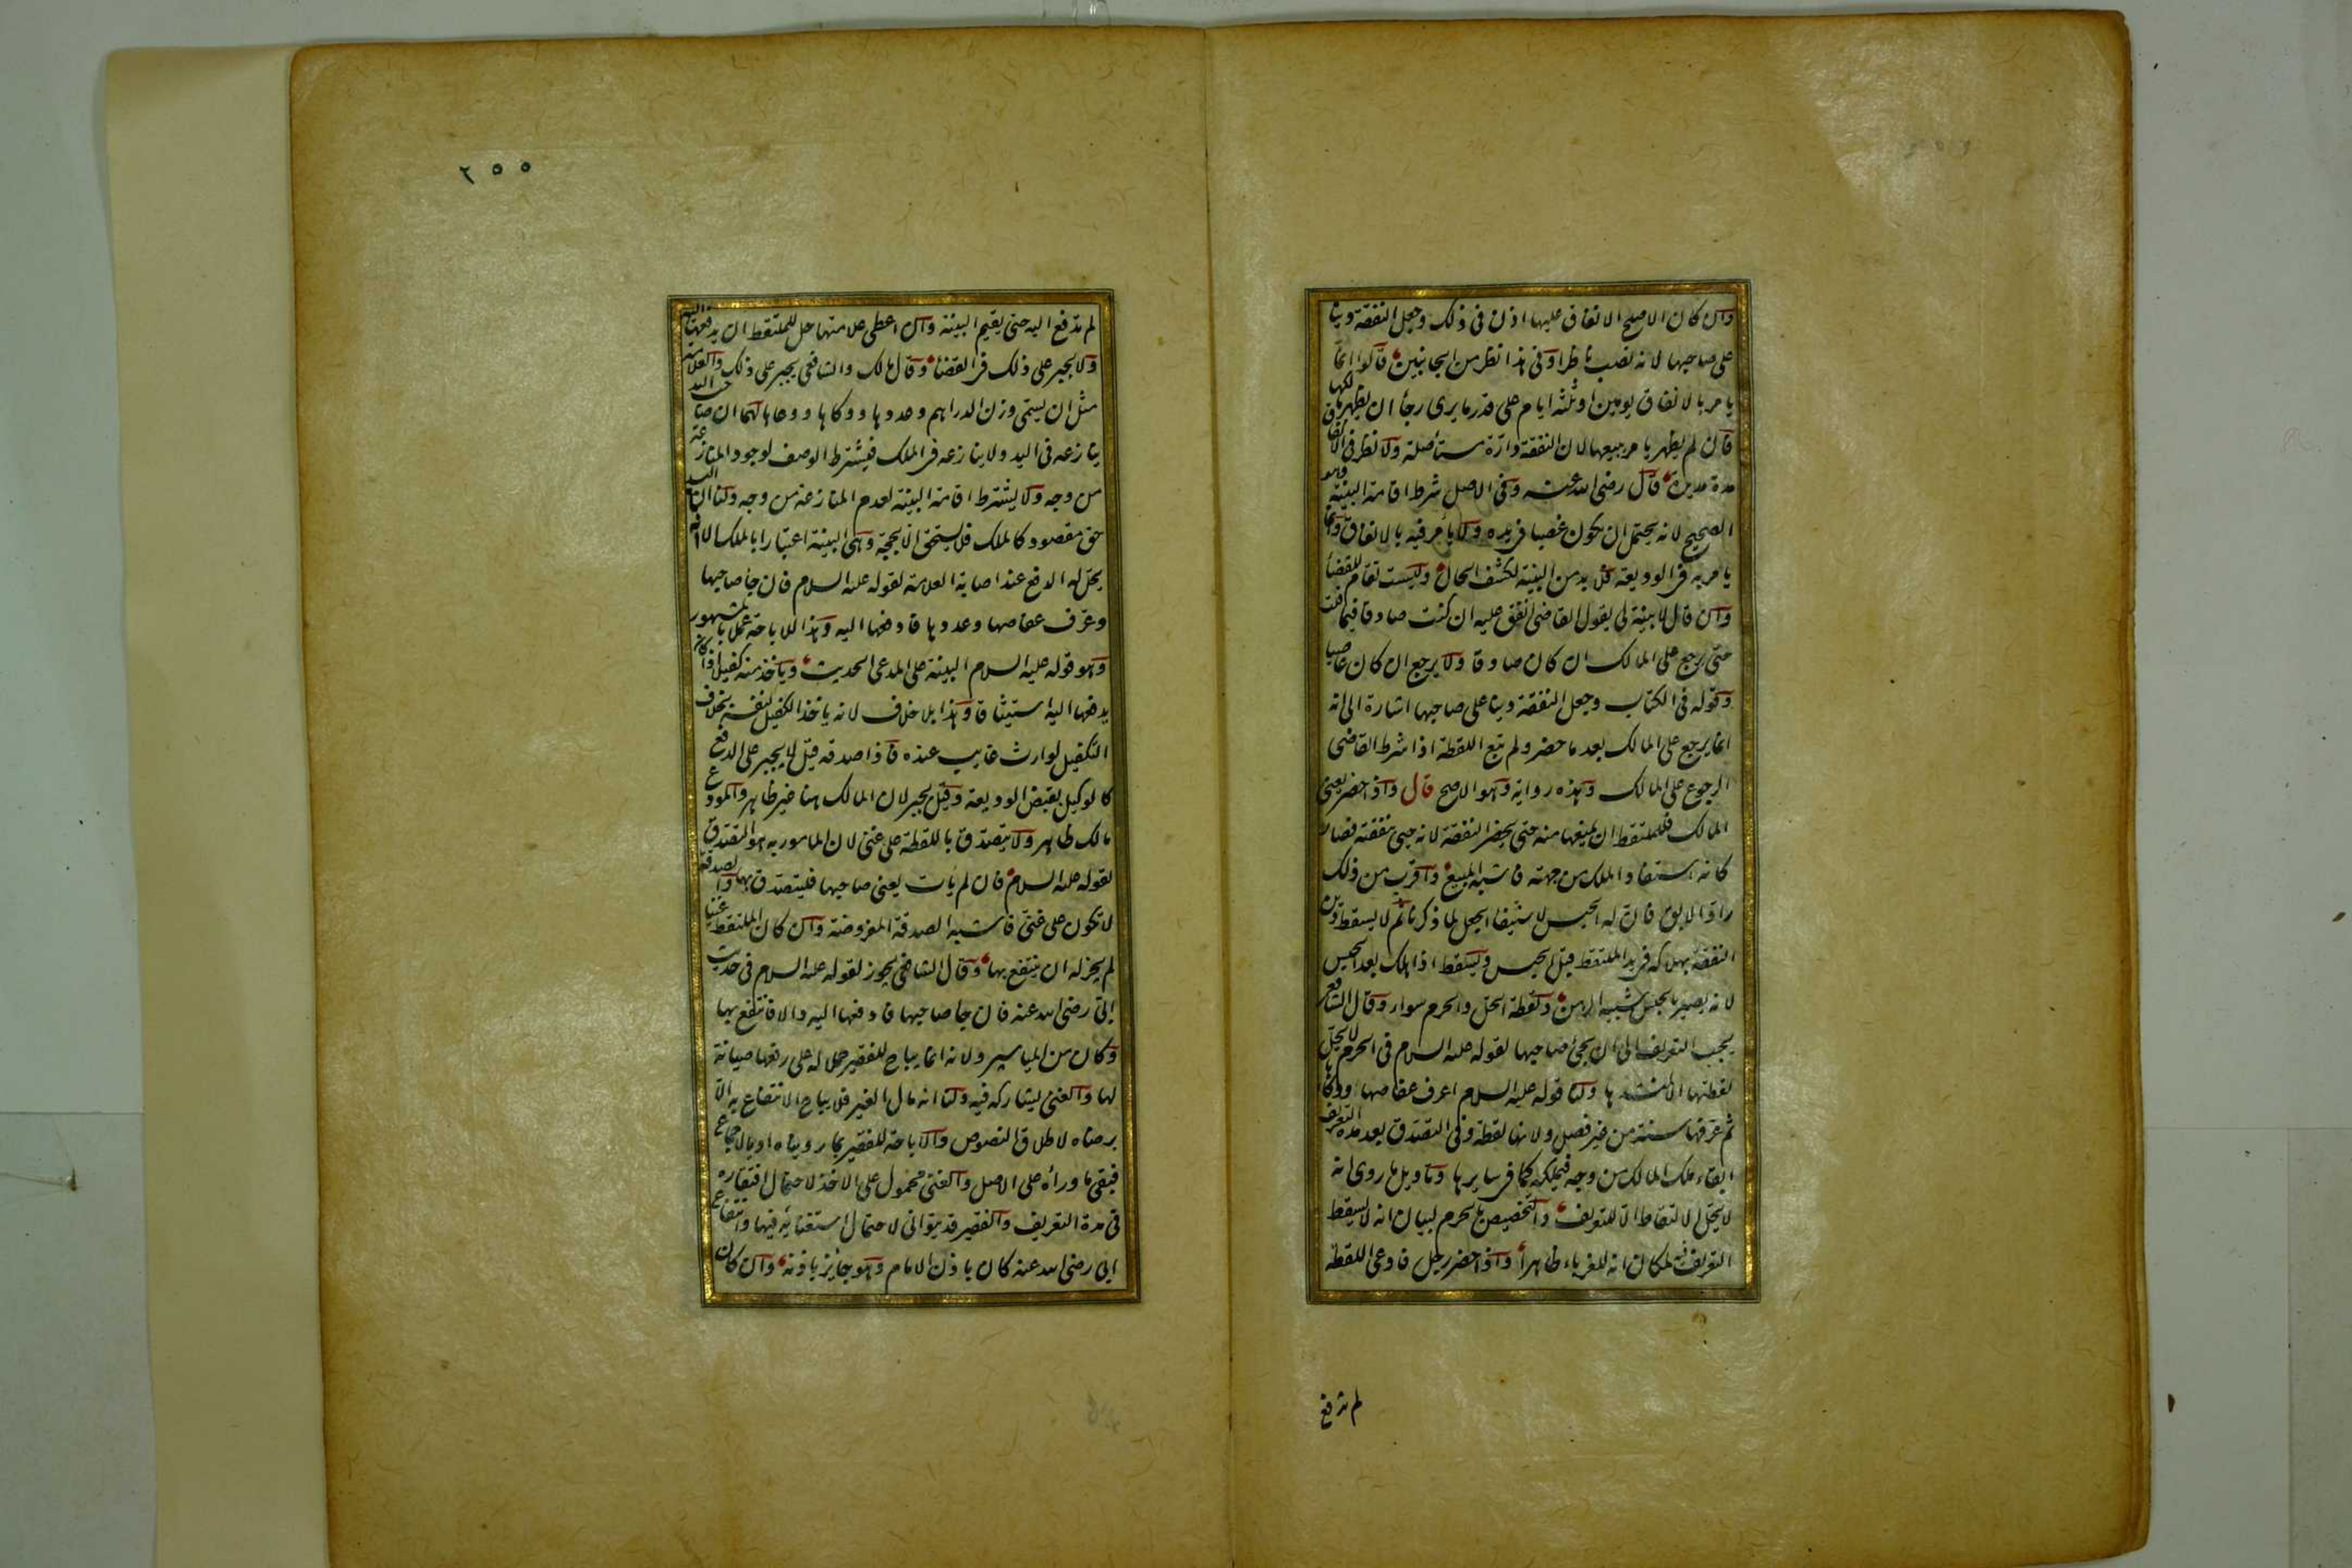 وان كان الاصلح الانفاق عليها اذن فى ذلك وجعل النفقة دينا
على صاحبها لانه نصب ناظرا وفى هذا نظر من الجانبين قالوا انما
يامر بالانفاق يومين او ثلثة ايام على قدر ما يرى رجأ ان يظهر مالكها
فان لم يظهر يامر ببيعها لان النفقة دارّة مستأصلة ولا نظر فى الانفاق
مدة مديدة قال رضى الله عنه وفى الاصل شرط اقامة البينة وهو
الصحيح لانه يحتمل ان يكون غصبا فى يده ولا يأمر فيه بالانفاق وانما
يامر به فى الوديعة فلا بد من البينة لكشف الحال وليست تقام للقضأ
وان قال لا بينة لى يقول القاضى انفق عليه ان كنت صادقا فيما قلت
حتى يرجع على المالك ان كان صادقا ولا يرجع ان كان غاصبا
وقوله فى الكتاب وجعل النفقة دينا على صاحبها اشارة الى انه
انما يرجع على المالك بعد ما حضر ولم تبع اللقطة اذا شرط القاضى
الرجوع على المالك وهذه رواية وهو الاصح قال واذا حضر يعنى
المالك فللملتقط ان يمنعها منه حتى يحضر النفقة لانه حيى بنفقته فصار
كانه استفاد الملك من جهته فاشبه المبيع واقرب من ذلك
رادّ الابق فان له الحبس لاستيفا الجعل لما ذكرنا ثم لا يسقط دين
النفقة بهلاكه فى يد الملتقط قبل الحبس ويسقط اذا هلك بعد الحبس
لانه يصير بالحبس شبيه الرهن ولقطة الحل والحرم سواء وقال الشافعى
يجب التعريف الى ان يجئ صاحبها لقوله عليه السلام فى الحرم لا يحل
لقطتها الا لمنشدها ولنا قوله عليه السلام اعرف عفاصها ووكاءها
ثم عرّفها سنة من غير فصل ولانها لقطة وفى التصدق بعد مدة التعريف
ابقاء ملك المالك من وجه فيملكه كما فى سايرها وتاويل ما روى انه
لا يحل الالتقاط الا للتعريف والتخصيص بالحرم لبيان انه لا يسقط
التعريف فيه لمكان انه للغرباء ظاهرا واذا حضر رجل فادعى اللقطة
لم تدفع
٢٥٥
لم تدفع اليه حتى يقيم البينة وان اعطى علامتها حل للملتقط ان يدفعها اليه
ولا يجبر على ذلك فى القضأ وقال مالك والشافعى يجبر على ذلك والعلامة
مثل ان يسمى وزن الدراهم وعددها ووكاها ووعاها لهما ان صاحب اليد
ينازعه فى اليد ولا ينازعه فى الملك فيشترط الوصف لوجود المنازعة
من وجه ولا يشترط اقامة البينة لعدم المنازعة من وجه ولنا ان اليد
حق مقصود كالملك فلا يستحق الا بحجة وهى البينة اعتبارا بالملك الا انه
يحل له الدفع عند اصابة العلامة لقوله عليه السلام فان جأ صاحبها
وعرف عفاصها وعددها فادفعها اليه وهذا للاباحة عملا بالمشهور
وهو قوله عليه السلام البينة على المدعى الحديث وياخذ منه كفيلا اذا كان
يدفعها اليه استيثاقا وهذا بلا خلاف لانه ياخذ الكفيل لنفسه بخلاف
التكفيل لوارث غايب عنده فاذا صدقه قيل لا يجبر على الدفع
كالوكيل بقبض الوديعة وقيل يجبر لان المالك هنا غير ظاهر والمودع
مالك ظاهر ولا يتصدق باللقطة على غنى لان المامور به هو التصدق
لقوله عليه السلام فان لم يات يعنى صاحبها فليتصدق بها والصدقة
لا تكون على غنى فاشبه الصدقة المفروضة وان كان الملتقط غنيا
لم يجز له ان ينتفع بها وقال الشافعى يجوز لقوله عليه السلام فى حديث
ابىّ رضى الله عنه فان جا صاحبها فادفعها اليه والا فانتفع بها
وكان من المياسير ولانه انما يباح للفقير حملا له على رفعها صيانة
لها والغنى يشاركه فيه ولنا انه مال الغير فلا يباح الانتفاع به الا
برضاه لاطلاق النصوص والاباحة للفقير بما رويناه او بالاجماع
فيبقى ما ورأه على الاصل والغنى محمول على الاخذ لاحتمال افتقاره
فى مدة التعريف والفقير قد يتوانى لاحتمال استغنايه فيها وانتفاع
ابى رضى الله عنه كان باذن الامام وهو جايز باذنه وان كان